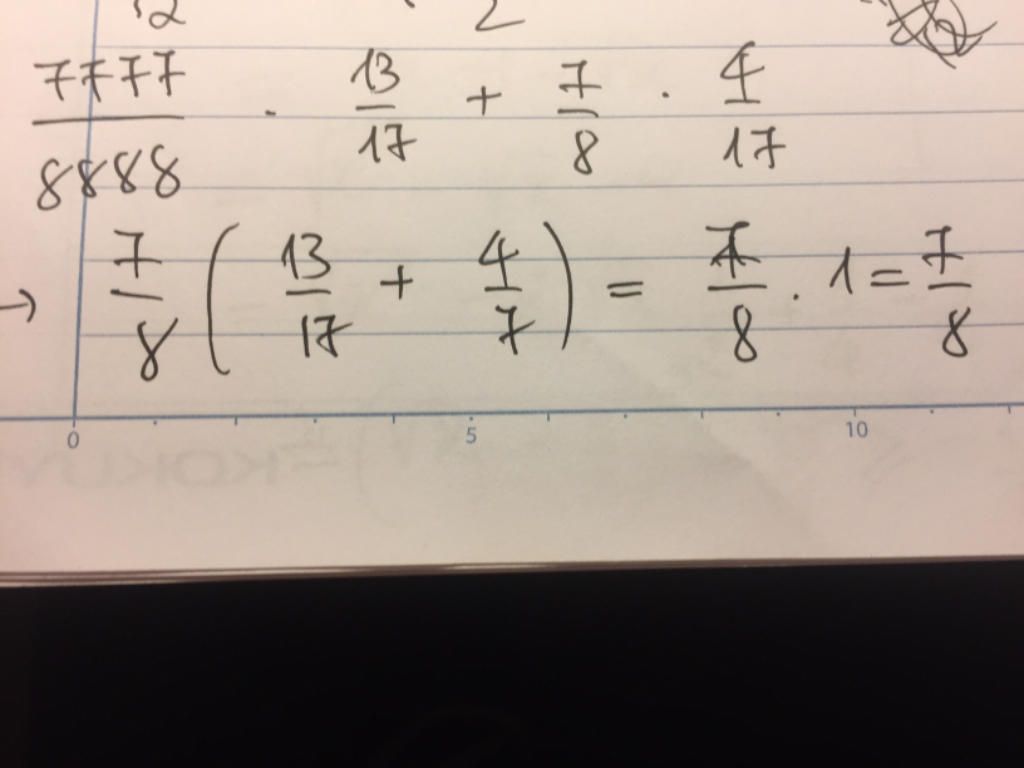 2 2
7777/8888 · 13/17 + 7/8 · 4/17
→ 7/8 ( 13/17 + 4/7 ) = 7/8 · 1 = 7/8
0 5 10